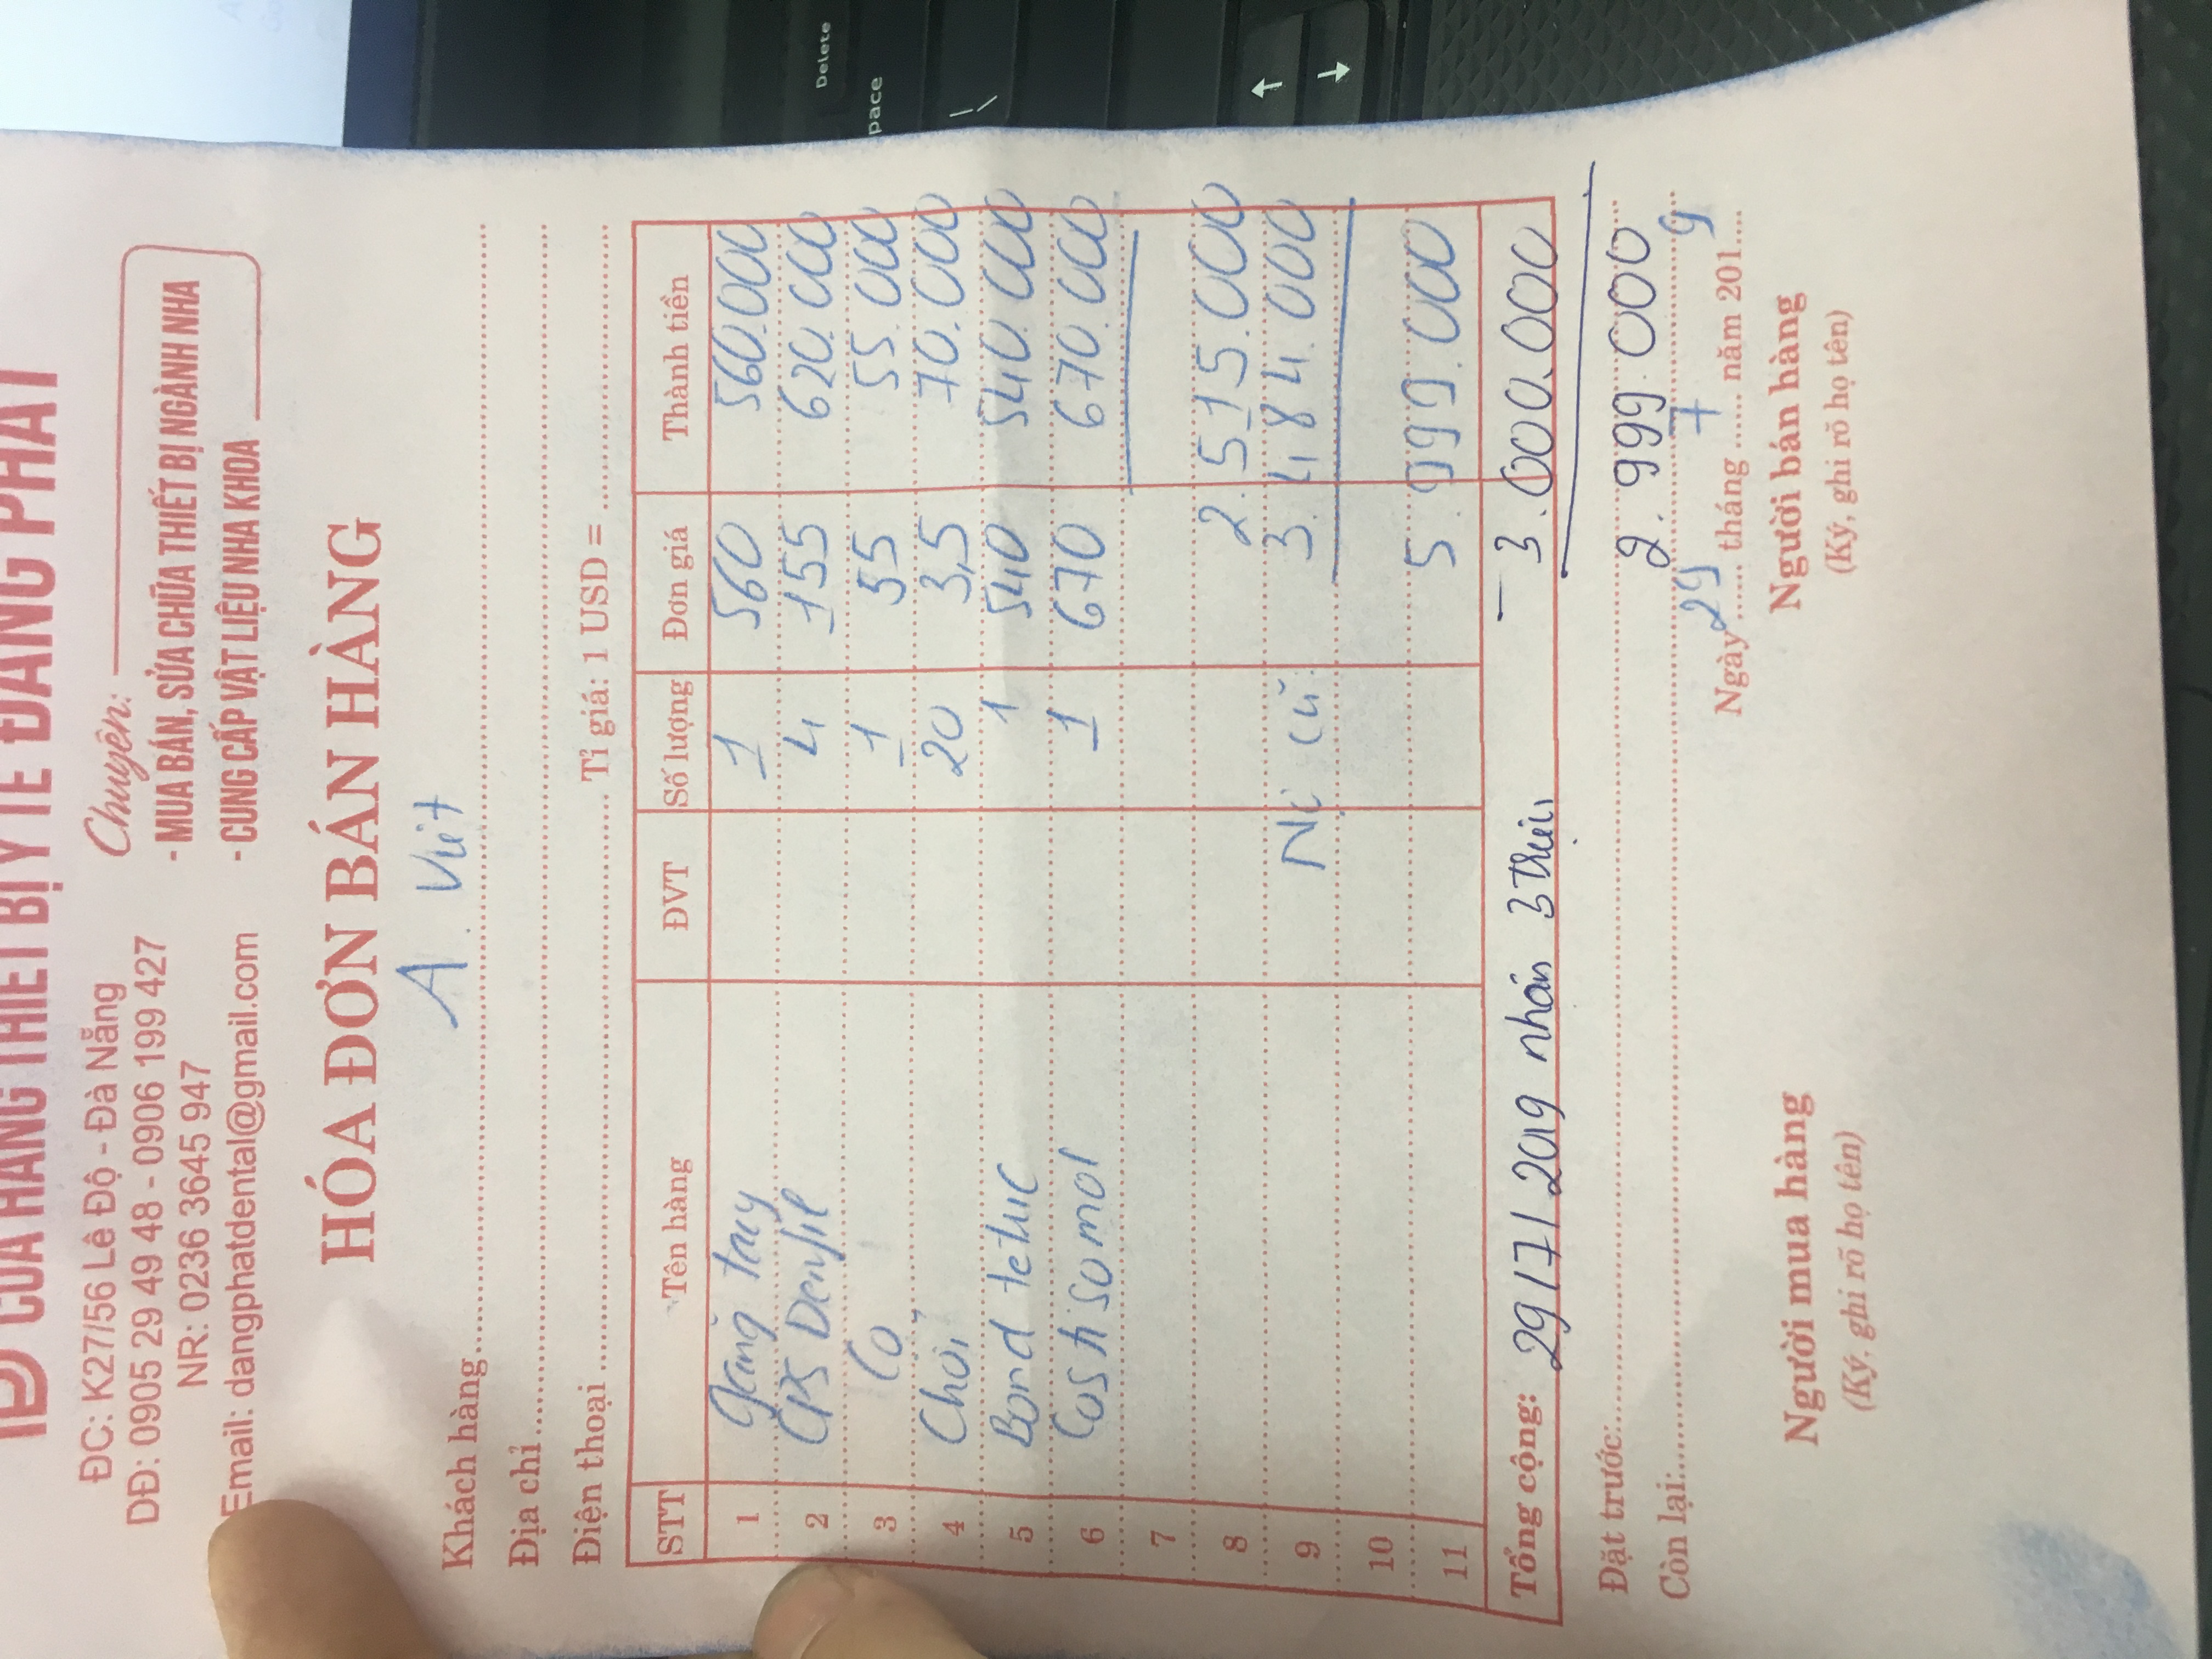 CỬA HÀNG THIẾT BỊ Y TẾ ĐĂNG PHÁT
ĐC: K27/56 Lê Độ - Đà Nẵng
DĐ: 0905 29 49 48 - 0906 199 427
NR: 0236 3645 947
Email: dangphatdental@gmail.com
Chuyên:
- MUA BÁN, SỬA CHỮA THIẾT BỊ NGÀNH NHA
- CUNG CẤP VẬT LIỆU NHA KHOA
HÓA ĐƠN BÁN HÀNG
Khách hàng A. Việt
Địa chỉ
Điện thoại Tỉ giá: 1 USD =
STT Tên hàng ĐVT Số lượng Đơn giá Thành tiền
1 găng tay 1 560 560.000
2 CPS 4 155 620.000
3 Cọ 1 55 55.000
4 Chổi 20 3,5 70.000
5 Bond 1 540 540.000
6 1 670 670.000
7
8 2.515.000
9 Nợ cũ: 3.484.000
10
11 5.999.000
Tổng cộng: 29/7/2019 nhận 3 triệu - 3.000.000
Đặt trước:
2.999.000
Còn lại:
Ngày 29 tháng 7 năm 2019
Người mua hàng Người bán hàng
(Ký, ghi rõ họ tên) (Ký, ghi rõ họ tên)
Delete
pace
\
↑
↓